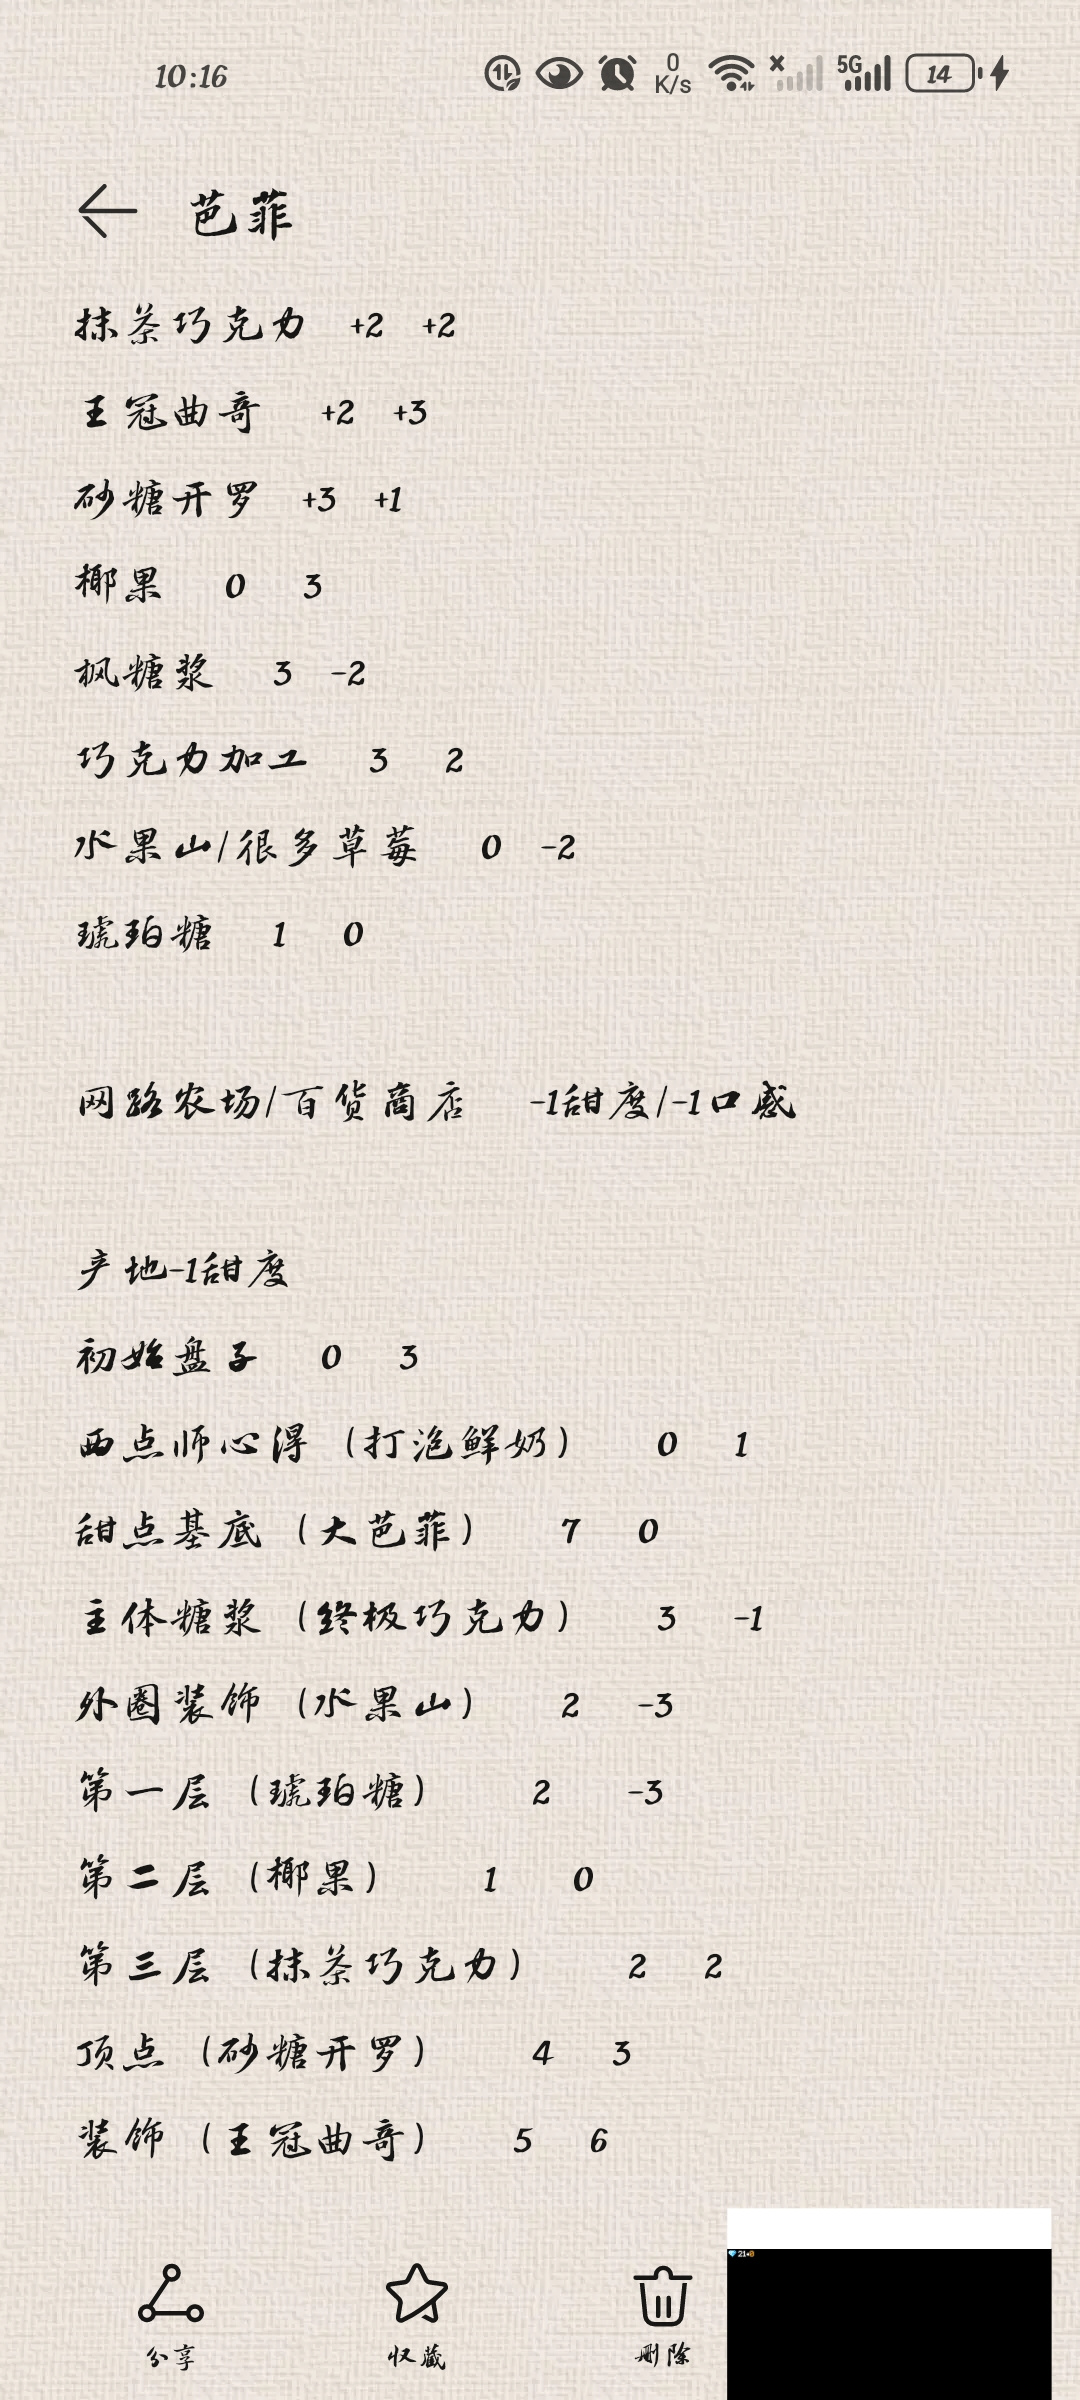 10:16 0 K/s 5G 14
芭菲
抹茶巧克力 +2 +2
王冠曲奇 +2 +3
砂糖开罗 +3 +1
椰果 0 3
枫糖浆 3 -2
巧克力加工 3 2
水果山/很多草莓 0 -2
琥珀糖 1 0
网路农场/百货商店 -1甜度/-1口感
产地-1甜度
初始盘子 0 3
西点师心得（打泡鲜奶） 0 1
甜点基底（大芭菲） 7 0
主体糖浆（终极巧克力） 3 -1
外圈装饰（水果山） 2 -3
第一层（琥珀糖） 2 -3
第二层（椰果） 1 0
第三层（抹茶巧克力） 2 2
顶点（砂糖开罗） 4 3
装饰（王冠曲奇） 5 6
分享 收藏 删除